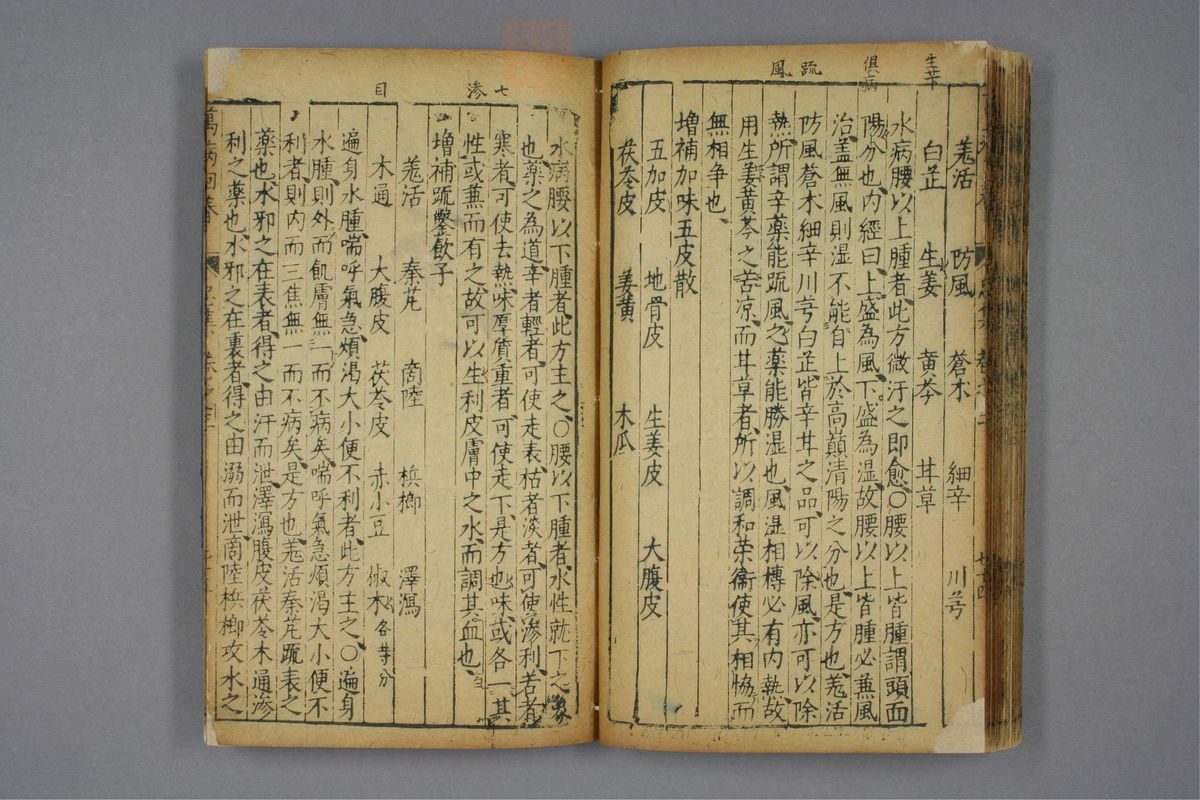 生芐
俱病
疏風
羗活 防風 蒼术 細辛 川芎
白芷 生姜 黄芩 甘草
水病腰以上腫者此方微汗之即愈○腰以上皆腫謂頭面
陽分也内經曰上盛為風下盛為湿故腰以上皆腫必蒹風
治盖無風則湿不能自上於高巔清陽之分也是方也羗活
防風蒼术細辛川芎白芷皆辛甘之品可以除風亦可以除
熱所謂辛藥能疏風之藥能勝湿也風湿相榑必有内熱故
用生姜黄芩之苦凉而甘草者所以調和荣衞使其相恊而
無相争也
增補加味五皮散
五加皮 地骨皮 生姜皮 大腹皮
茯苓皮 姜黄 木瓜
七
渗
目
水病腰以下腫者此方主之○腰以下腫者水性就下之象
也藥之為道辛者輕者可使走表枯者淡者可使渗利苦者
寒者可使去熱味厚質重者可使走下是方也味或各一其
性或蒹而有之故可以生利皮膚中之水而調其血也
增補疏鑿飲子
羗活 秦芃 商陸 梹榔 澤瀉
木通 大腹皮 茯苓皮 赤小豆 椒木各等分
遍身水腫喘呼氣急煩渴大小便不利者此方主之○遍身
水腫則外而飢膚無一而不病矣喘呼氣急煩渴大小便不
利者則内而三焦無一而不病矣是方也羗活秦芃踈表之
藥也水邪之在表者得之由汗而泄澤瀉腹皮茯苓木通渗
利之藥也水邪之在裏者得之由溺而泄商陸梹榔攻水之
萬病回春